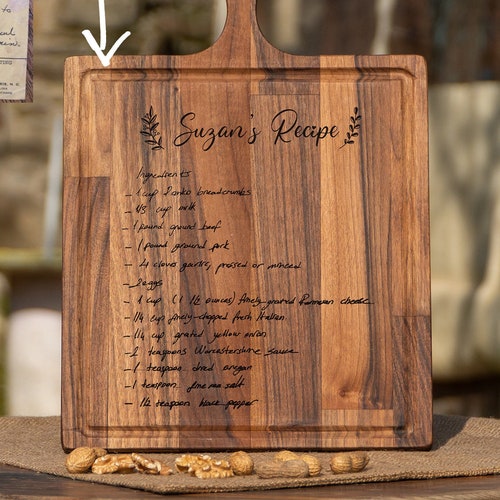 Suzan's Recipe
Ingredients
– 1 cup Panko breadcrumbs
– 1/3 cup milk
– 1 pound ground beef
– 1 pound ground pork
– 4 cloves garlic, pressed or minced
– 2 eggs
– 1 cup (1 1/2 ounces) finely grated Parmesan cheese
– 1/4 cup finely-chopped fresh Italian
– 1/4 cup grated yellow onion
– 2 teaspoons Worcestershire sauce
– 1 teaspoon dried oregan
– 1 teaspoon fine sea salt
– 1/2 teaspoon black pepper